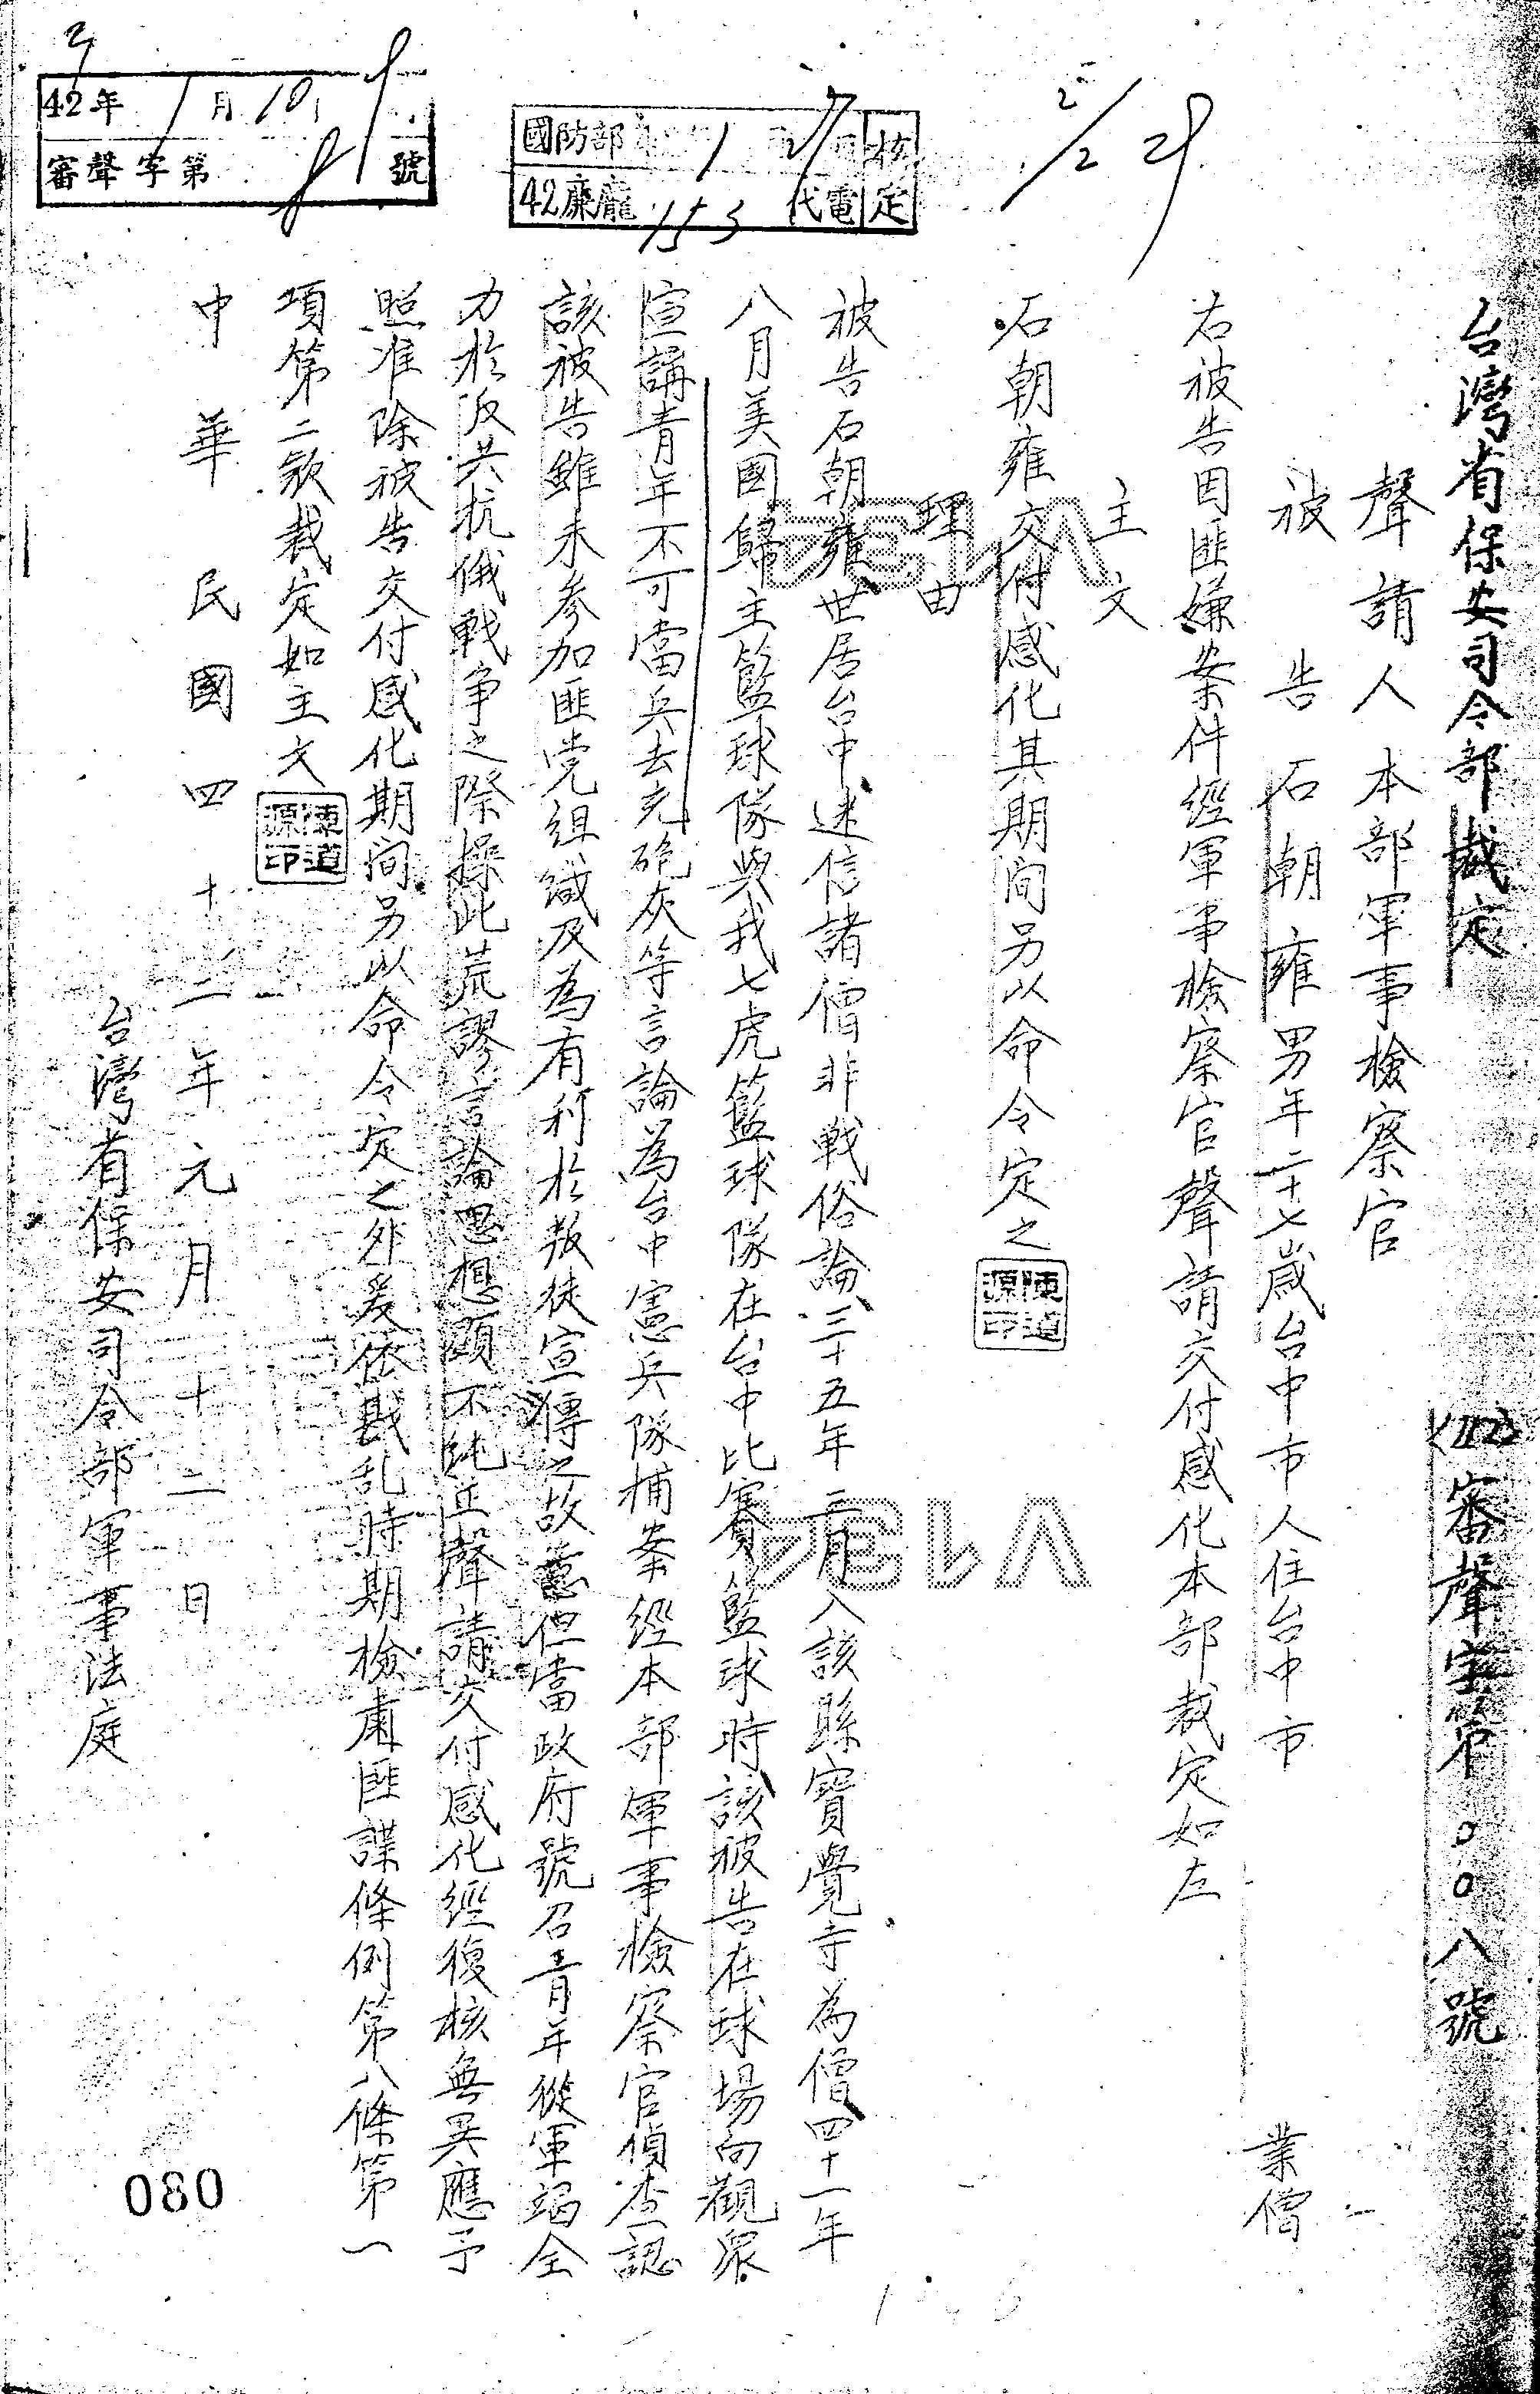 台灣省保安司令部裁定
(42)審聲字第〇〇八號
聲請人本部軍事檢察官
被告石朝雍男年二十七歲台中市人住台中市
業僧
右被告因匪嫌案件經軍事檢察官聲請交付感化本部裁定如左
主文
石朝雍交付感化其期間另以命令定之
陳道源印
理由
被告石朝雍世居台中迷信諸僧非戰俗論三十五年二月入該縣寶覺寺為僧四十一年
八月美國歸主籃球隊與我七虎籃球隊在台中比賽籃球時該被告在球場向觀眾
宣講青年不可當兵去充砲灰等言論為台中憲兵隊捕案經本部軍事檢察官偵查認
該被告雖未參加匪党組織及為有利於叛徒宣傳之故意但當政府號召青年從軍竭全
力於反共抗俄戰争之際操此荒謬言論思想頗不純正聲請交付感化經復核無異應予
照准除被告交付感化期間另以命令定之外爰依戡乱時期檢肅匪諜條例第八條第一
項第二款裁定如主文
陳道源印
中華民國四十二年元月十二日
台灣省保安司令部軍事法庭
國防部 1 27 核定
42廉龐 153 代電
42年1月10
審聲字第8號
2/2
080